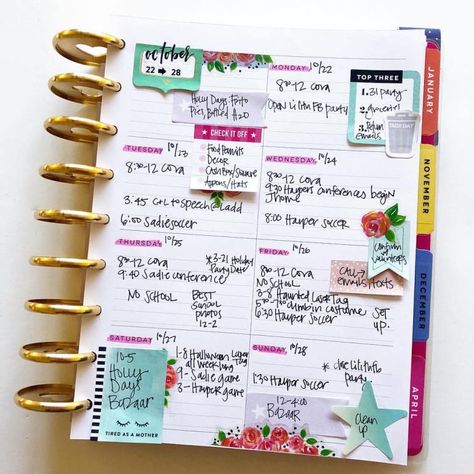 october
22 → 28
Holly Days Photo
CHECK IT OFF
Food Permits
Decor
MONDAY 10/22
8:30-12 Cora
Open Lilith FB party
TOP THREE
1. 31 party
2. groceries
3. Return
emails
TRASH DAY
TUESDAY 10/23
8:30-12 Cora
3:45 C+L to Speech @ Ladd
6:00 Sadie soccer
WEDNESDAY 10/24
8-12 Cora
9:30 Harpers Conferences begin
@ home
8:00 Harper soccer
Confirm
volunteers
THURSDAY 10/25
8-12 Cora
9:40 Sadie conference
NO SCHOOL
* 3-21 Holiday
Party Date
BEST
photos
12-2
FRIDAY 10/26
8-12 Cora
NO SCHOOL
6:30 Harper Soccer
Set
up.
CALL +
emails/texts
SATURDAY 10/27
10-5
Holly
Days
Bazaar
TIRED AS A MOTHER
1-8 Halloween Lazer
Tag
all week long
9- Sadie game
3- Harper game
SUNDAY 10/28
party
1:30 Harper Soccer
12-4:00
BAZAAR
clean
up
JANUARY
NOVEMBER
DECEMBER
APRIL